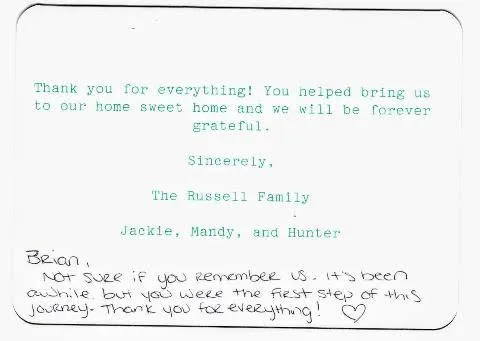 Thank you for everything! You helped bring us
to our home sweet home and we will be forever
grateful.
Sincerely,
The Russell Family
Jackie, Mandy, and Hunter
Brian,
Not sure if you remember us. it's been
awhile. but you were the first step of this
journey. Thank you for everything! ♡